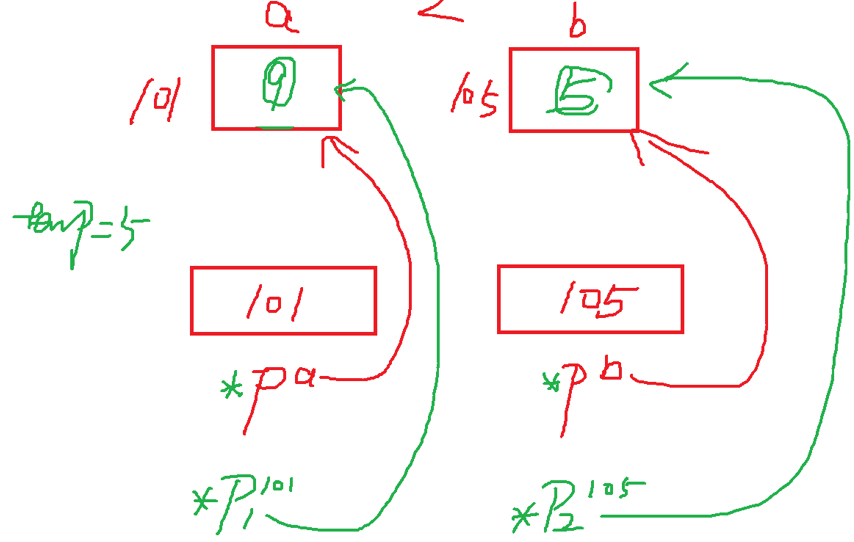 a < b
101 9 105 5
temp=5
101 105
*Pa *Pb
*P1 101 *P2 105